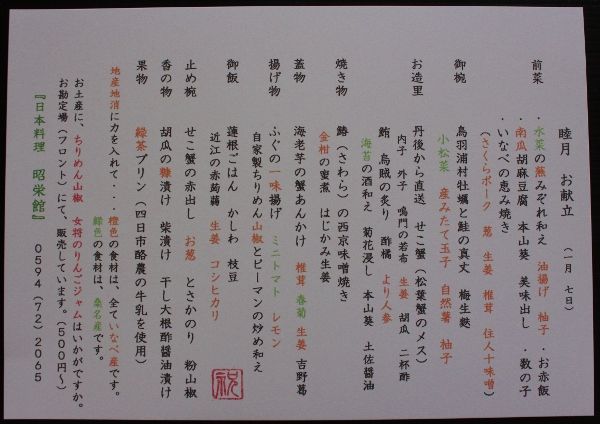 睦月 お献立 (一月 七日)
前菜 ・水菜の蕪みぞれ和え 油揚げ 柚子 ・お赤飯
・南瓜胡麻豆腐 本山葵 美味出し ・数の子
・いなべの恵み焼き
(さくらポーク 葱 生姜 椎茸 住人十味噌)
御椀 鳥羽浦村牡蠣と鮭の真丈 梅生麩
小松菜 産みたて玉子 自然薯 柚子
お造里 丹後から直送 せこ蟹(松葉蟹のメス)
内子 外子 鳴門の若布 生姜 胡瓜 二杯酢
鮪 烏賊の炙り 酢橘 より人参
海苔の酒和え 菊花浸し 本山葵 土佐醤油
焼き物 鰆(さわら)の西京味噌焼き
金柑の蜜煮 はじかみ生姜
蓋物 海老芋の蟹あんかけ 椎茸 春菊 生姜 吉野葛
揚げ物 ふぐの一味揚げ ミニトマト レモン
自家製ちりめん山椒とピーマンの炒め和え
御飯 蓮根ごはん かしわ 枝豆
近江の赤蒟蒻 生姜 コシヒカリ
止め椀 せこ蟹の赤出し お葱 とさかのり 粉山椒
香の物 胡瓜の糠漬け 柴漬け 干し大根酢醤油漬け
果物 緑茶プリン(四日市酪農の牛乳を使用)
祝
地産地消に力を入れて・・・橙色の食材は、全ていなべ産です。
緑色の食材は、桑名産です。
お土産に、ちりめん山椒 女将のりんごジャムはいかがですか。
お勘定場(フロント)にて、販売しています。(500円~)
『日本料理 昭栄館』 0594(72)2065